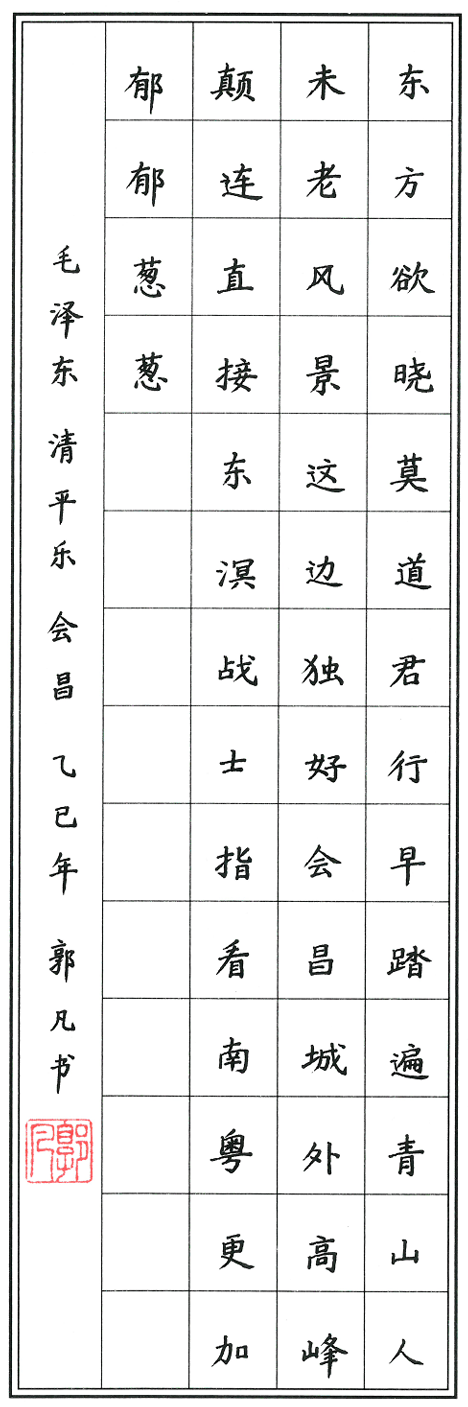 东方欲晓莫道君行早踏遍青山人
未老风景这边独好会昌城外高峰
颠连直接东溟战士指看南粤更加
郁郁葱葱
毛泽东 清平乐 会昌 乙巳年 郭凡书
郭凡